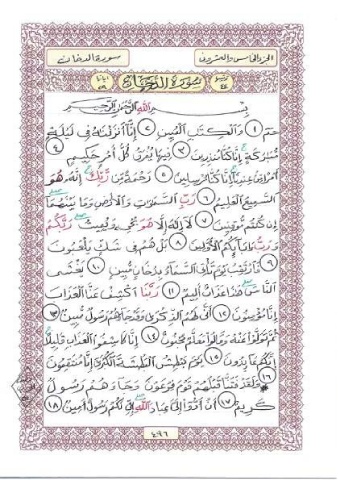 الجزء الخامس والعشرون سورة الدخان
سورة الدخان
بسم الله الرحمن الرحيم
حم ١ والكتب المبين ٢ إنا أنزلنه في ليلة
مبركة إنا كنا منذرين ٣ فيها يفرق كل أمر حكيم ٤
أمرا من عندنا إنا كنا مرسلين ٥ رحمة من ربك إنه هو
السميع العليم ٦ رب السموت والأرض وما بينهما
إن كنتم موقنين ٧ لا إله إلا هو يحي ويميت ربكم
ورب ءابائكم الأولين ٨ بل هم في شك يلعبون
٩ فارتقب يوم تأتي السماء بدخان مبين ١٠ يغشى
الناس هذا عذاب أليم ١١ ربنا اكشف عنا العذاب
إنا مؤمنون ١٢ أنى لهم الذكرى وقد جاءهم رسول مبين ١٣
ثم تولوا عنه وقالوا معلم مجنون ١٤ إنا كاشفوا العذاب قليلا
إنكم عائدون ١٥ يوم نبطش البطشة الكبرى إنا منتقمون
١٦ ولقد فتنا قبلهم قوم فرعون وجاءهم رسول
كريم ١٧ أن أدوا إلي عباد الله إني لكم رسول أمين ١٨
٤٩٦